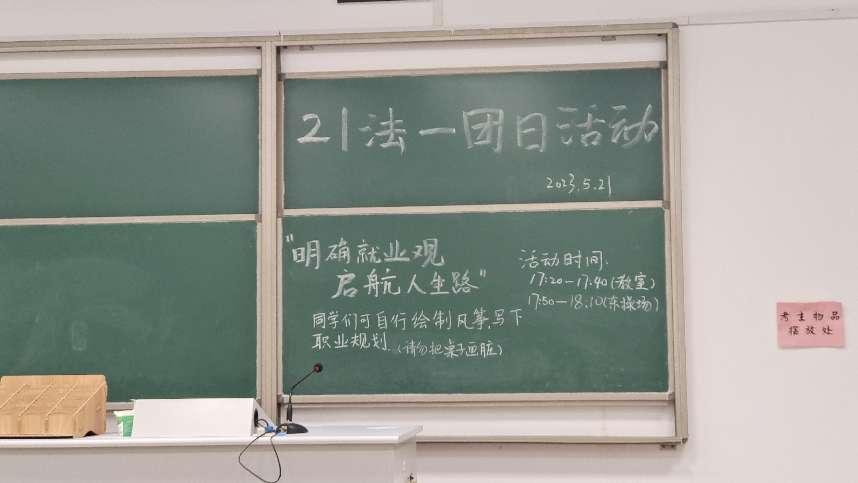 21法一团日活动
2023.5.21
"明确就业观
启航人生路"
同学们可自行绘制风筝,写下
职业规划.(请勿把桌子画脏)
活动时间.
17:20-17:40(教室)
17:50-18.10(东操场)
考生物品
摆放处